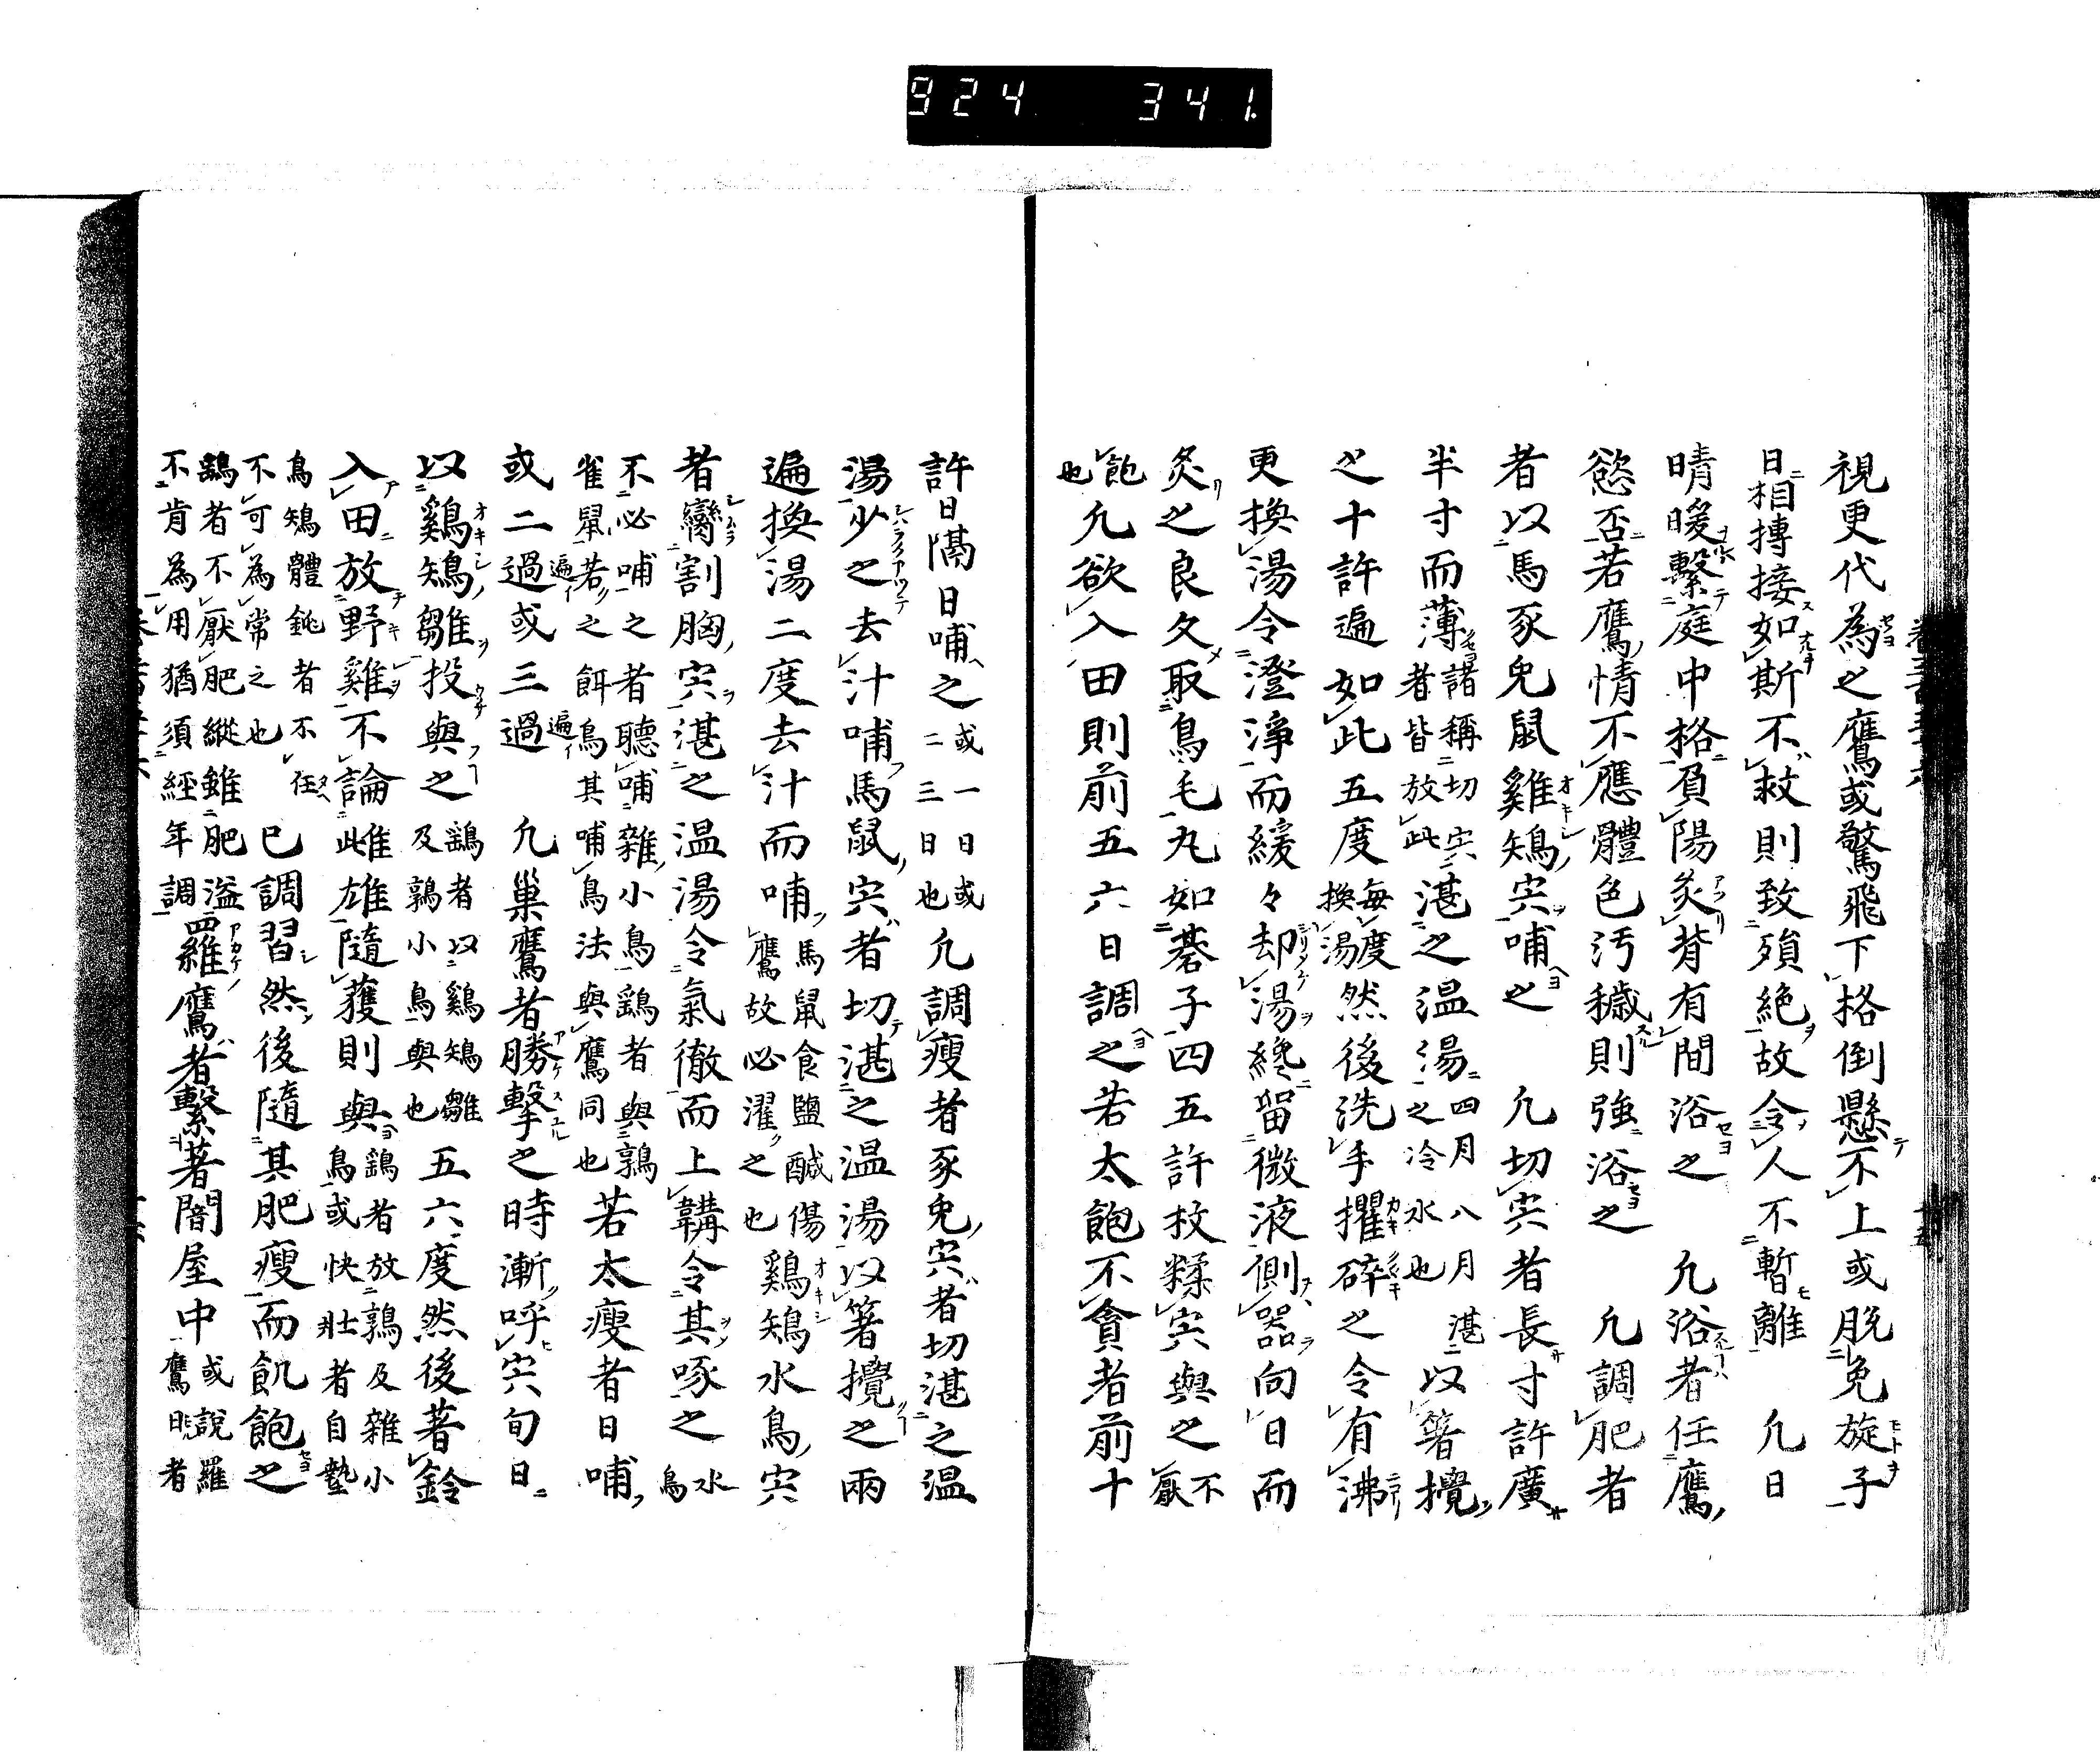 924 341.
視更代為之鷹或驚飛下格倒懸不上或脱免旋子
日相摶接如斯不救則致殞絶故令人不暫離　凡日
晴暖繋庭中格負陽炙背有間浴之　凡浴者任鷹
慾否若鷹情不應體色汚穢則強浴之　凡調肥者
者以馬豕兔鼠雞鴙宍哺之　凡切宍者長寸許廣
半寸而薄諸稱切宍者皆放此湛之温湯四月八月湛之冷水也以箸攪
之十許遍如此五度毎度換湯然後洗手攫碎之令有沸
更換湯令澄浄而緩々却湯終留微液側器向日而
炙之良久取鳥毛丸如碁子四五許枚糅宍與之不厭
飽也凡欲入田則前五六日調之若太飽不貪者前十
許日隔日哺之或一日或二三日也凡調瘦者豕兔宍者切湛之温
湯少之去汁哺馬鼠宍者切湛之温湯以箸攪之兩
遍換湯二度去汁而哺馬鼠食鹽醎傷鷹故必濯之也鷄鴙水鳥宍
者臠割胸宍湛之温湯令氣徹而上韝令其啄之水鳥
不必哺之者聽哺雜小鳥鷂者與鶉雀鼠若之餌鳥其哺鳥法與鷹同也若太瘦者日哺
或二過或三過　凡巢鷹者勝擊之時漸呼宍旬日
以鷄鴙雛投與之鷂者以鷄鴙雛及鶉小鳥與也五六度然後著鈴
入田放野雞不論雌雄隨獲則與鷂者放鶉及雜小鳥或快壯者自蟄
鳥鴙體鈍者不任不可為常之也已調習然後隨其肥瘦而飢飽之
鷂者不厭肥縱雖肥溢不肯為用猶須經年調罗維鷹者繋著闇屋中或說羅鷹日者